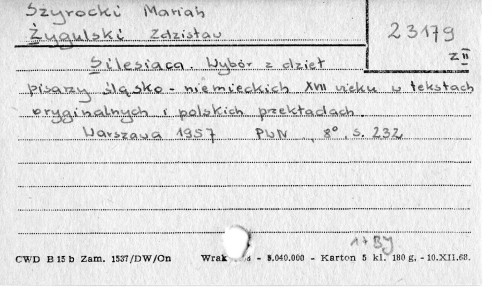 Szyrocki Marian
Żygulski Zdzisław
23179
Z II
Silesiaca. Wybór z dzieł
pisarzy śląsko - niemieckich XVII wieku w tekstach
oryginalnych i polskich przekładach.
Warszawa 1957 PWN, 8°, s. 232
1+BJ
CWD B 15 b Zam. 1537/DW/On - 5.040.000 - Karton 5 kl. 180 g. - 10.XII.68.